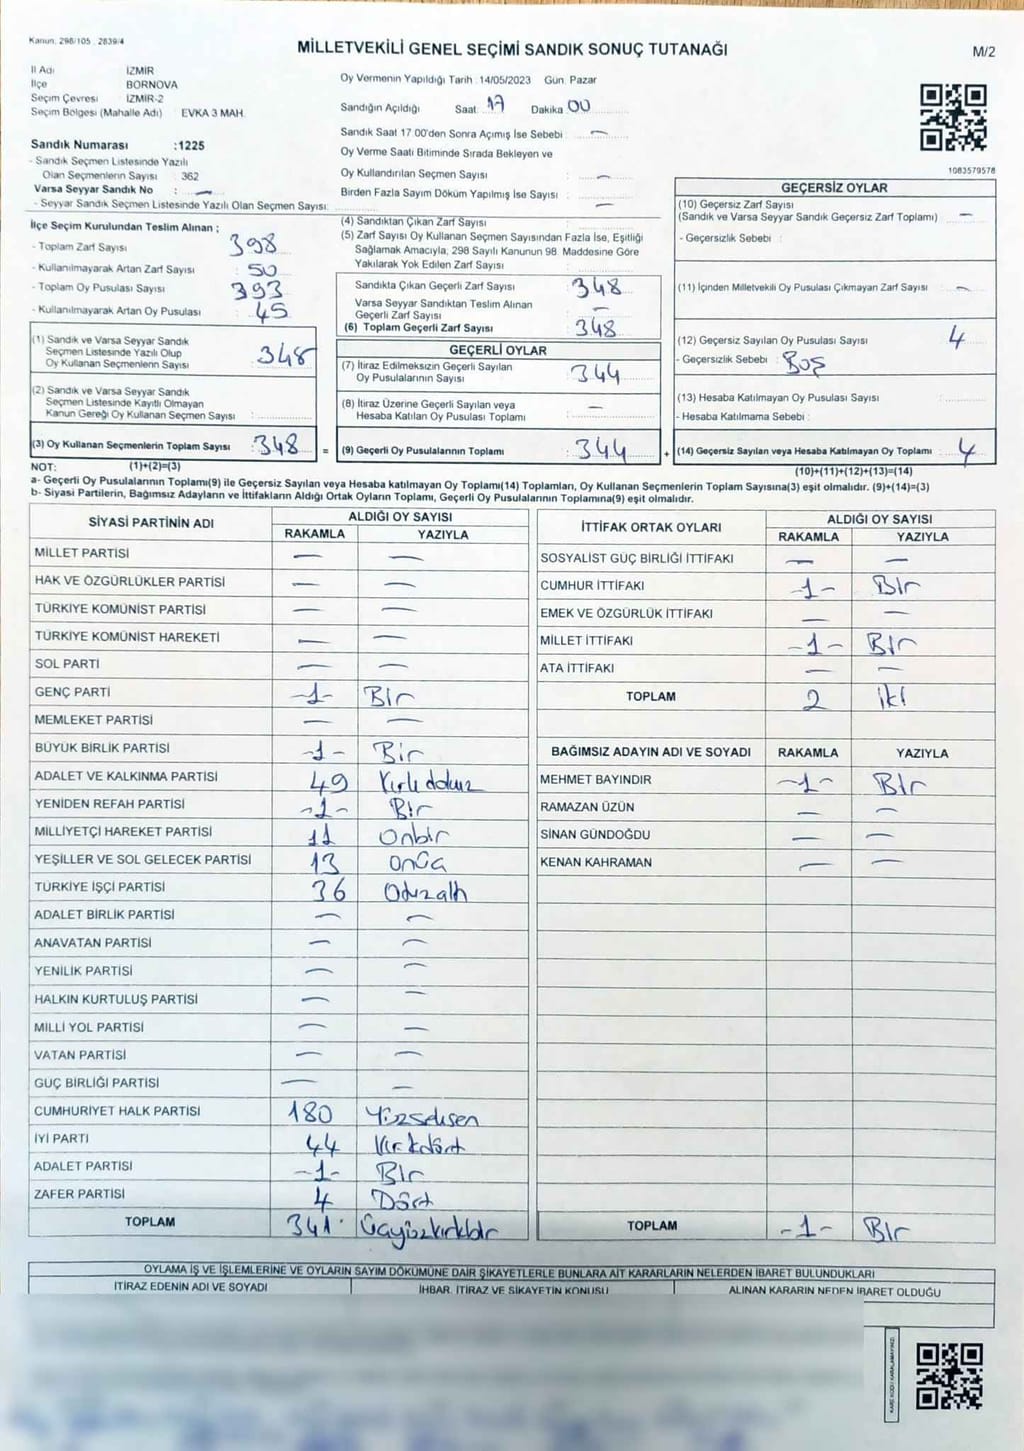 Kanun, 298/105 , 2839/4
MİLLETVEKİLİ GENEL SEÇİMİ SANDIK SONUÇ TUTANAĞI
M/2
İl Adı İZMİR
İlçe BORNOVA
Seçim Çevresi : İZMİR-2
Seçim Bölgesi (Mahalle Adı) : EVKA 3 MAH.
Sandık Numarası :1225
- Sandık Seçmen Listesinde Yazılı
Olan Seçmenlerin Sayısı : 362
Varsa Seyyar Sandık No : —
- Seyyar Sandık Seçmen Listesinde Yazılı Olan Seçmen Sayısı: —
Oy Vermenin Yapıldığı Tarih : 14/05/2023 Gün: Pazar
Sandığın Açıldığı Saat: 17 Dakika: 00
Sandık Saat 17.00'den Sonra Açımış İse Sebebi : —
Oy Verme Saati Bitiminde Sırada Bekleyen ve
Oy Kullandırılan Seçmen Sayısı : —
Birden Fazla Sayım Döküm Yapılmış İse Sayısı : —
1083579578
İlçe Seçim Kurulundan Teslim Alınan ;
- Toplam Zarf Sayısı : 398
- Kullanılmayarak Artan Zarf Sayısı : 50
- Toplam Oy Pusulası Sayısı : 393
- Kullanılmayarak Artan Oy Pusulası : 45
(1) Sandık ve Varsa Seyyar Sandık
Seçmen Listesinde Yazılı Olup
Oy Kullanan Seçmenlerin Sayısı : 348
(2) Sandık ve Varsa Seyyar Sandık
Seçmen Listesinde Kayıtlı Olmayan
Kanun Gereği Oy Kullanan Seçmen Sayısı :
(3) Oy Kullanan Seçmenlerin Toplam Sayısı : 348
(4) Sandıktan Çıkan Zarf Sayısı :
(5) Zarf Sayısı Oy Kullanan Seçmen Sayısından Fazla İse, Eşitliği
Sağlamak Amacıyla, 298 Sayılı Kanunun 98. Maddesine Göre
Yakılarak Yok Edilen Zarf Sayısı :
Sandıkta Çıkan Geçerli Zarf Sayısı : 348
Varsa Seyyar Sandıktan Teslim Alınan
Geçerli Zarf Sayısı : —
(6) Toplam Geçerli Zarf Sayısı : 348
GEÇERLİ OYLAR
(7) İtiraz Edilmeksizin Geçerli Sayılan
Oy Pusulalarının Sayısı : 344
(8) İtiraz Üzerine Geçerli Sayılan veya
Hesaba Katılan Oy Pusulası Toplamı : —
= (9) Geçerli Oy Pusulalarının Toplamı : 344 +
GEÇERSİZ OYLAR
(10) Geçersiz Zarf Sayısı
(Sandık ve Varsa Seyyar Sandık Geçersiz Zarf Toplamı) : —
- Geçersizlik Sebebi :
(11) İçinden Milletvekili Oy Pusulası Çıkmayan Zarf Sayısı : —
(12) Geçersiz Sayılan Oy Pusulası Sayısı : 4
- Geçersizlik Sebebi : Boş
(13) Hesaba Katılmayan Oy Pusulası Sayısı :
- Hesaba Katılmama Sebebi :
(14) Geçersiz Sayılan veya Hesaba Katılmayan Oy Toplamı : 4
NOT: (1)+(2)=(3)
(10)+(11)+(12)+(13)=(14)
a- Geçerli Oy Pusulalarının Toplamı(9) ile Geçersiz Sayılan veya Hesaba katılmayan Oy Toplamı(14) Toplamları, Oy Kullanan Seçmenlerin Toplam Sayısına(3) eşit olmalıdır. (9)+(14)=(3)
b- Siyasi Partilerin, Bağımsız Adayların ve İttifakların Aldığı Ortak Oyların Toplamı, Geçerli Oy Pusulalarının Toplamına(9) eşit olmalıdır.
SİYASİ PARTİNİN ADI ALDIĞI OY SAYISI
RAKAMLA YAZIYLA
MİLLET PARTİSİ — —
HAK VE ÖZGÜRLÜKLER PARTİSİ — —
TÜRKİYE KOMÜNİST PARTİSİ — —
TÜRKİYE KOMÜNİST HAREKETİ — —
SOL PARTİ — —
GENÇ PARTİ -1- Bir
MEMLEKET PARTİSİ — —
BÜYÜK BİRLİK PARTİSİ -1- Bir
ADALET VE KALKINMA PARTİSİ 49 Kırkdokuz
YENİDEN REFAH PARTİSİ -1- Bir
MİLLİYETÇİ HAREKET PARTİSİ 11 Onbir
YEŞİLLER VE SOL GELECEK PARTİSİ 13 Onüç
TÜRKİYE İŞÇİ PARTİSİ 36 Otuzaltı
ADALET BİRLİK PARTİSİ — —
ANAVATAN PARTİSİ — —
YENİLİK PARTİSİ — —
HALKIN KURTULUŞ PARTİSİ — —
MİLLİ YOL PARTİSİ — —
VATAN PARTİSİ — —
GÜÇ BİRLİĞİ PARTİSİ — —
CUMHURİYET HALK PARTİSİ 180 Yüzseksen
İYİ PARTİ 44 Kırkdört
ADALET PARTİSİ -1- Bir
ZAFER PARTİSİ 4 Dört
TOPLAM 341 Üçyüzkırkbir
İTTİFAK ORTAK OYLARI ALDIĞI OY SAYISI
RAKAMLA YAZIYLA
SOSYALİST GÜÇ BİRLİĞİ İTTİFAKI — —
CUMHUR İTTİFAKI -1- Bir
EMEK VE ÖZGÜRLÜK İTTİFAKI — —
MİLLET İTTİFAKI -1- Bir
ATA İTTİFAKI — —
TOPLAM 2 İki
BAĞIMSIZ ADAYIN ADI VE SOYADI RAKAMLA YAZIYLA
MEHMET BAYINDIR -1- Bir
RAMAZAN ÜZÜN — —
SİNAN GÜNDOĞDU — —
KENAN KAHRAMAN — —
TOPLAM -1- Bir
OYLAMA İŞ VE İŞLEMLERİNE VE OYLARIN SAYIM DÖKÜMÜNE DAİR ŞİKAYETLERLE BUNLARA AİT KARARLARIN NELERDEN İBARET BULUNDUKLARI
İTİRAZ EDENİN ADI VE SOYADI İHBAR, İTİRAZ VE ŞİKAYETİN KONUSU ALINAN KARARIN NEDEN İBARET OLDUĞU
KARE KODU KARALAMAYINIZ!